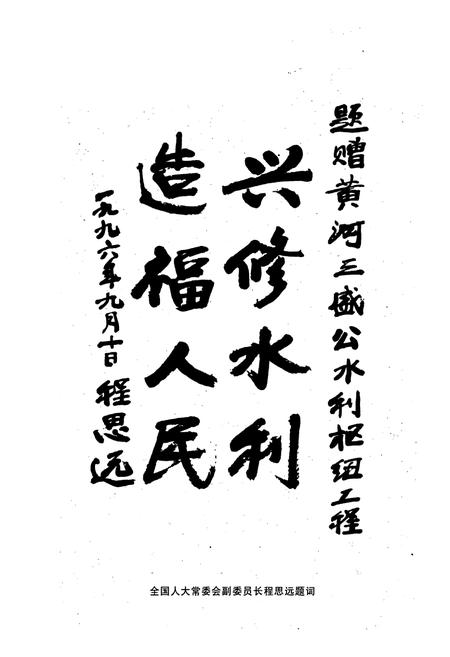 题赠黄河三盛公水利枢纽工程
兴修水利
造福人民
一九九六年九月十日 程思远
全国人大常委会副委员长程思远题词